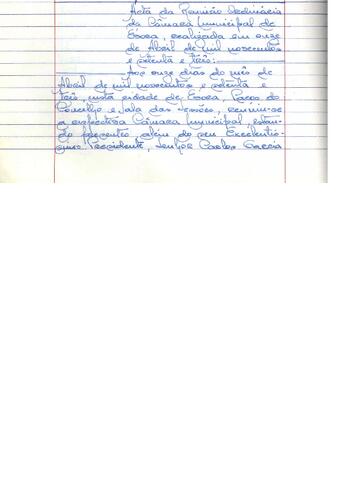 Acta da Reunião Ordinária
da Câmara Municipal de
Évora, realizada em onze
de Abril de mil novecentos
e setenta e três:
Aos onze dias do mês de
Abril de mil novecentos e setenta e
três, nesta cidade de Évora, Paços do
Concelho e sala das sessões, reuniu-se
a respectiva Câmara Municipal, estan-
do presentes, além do seu Excelentís-
simo Presidente, Senhor Carlos Garcia